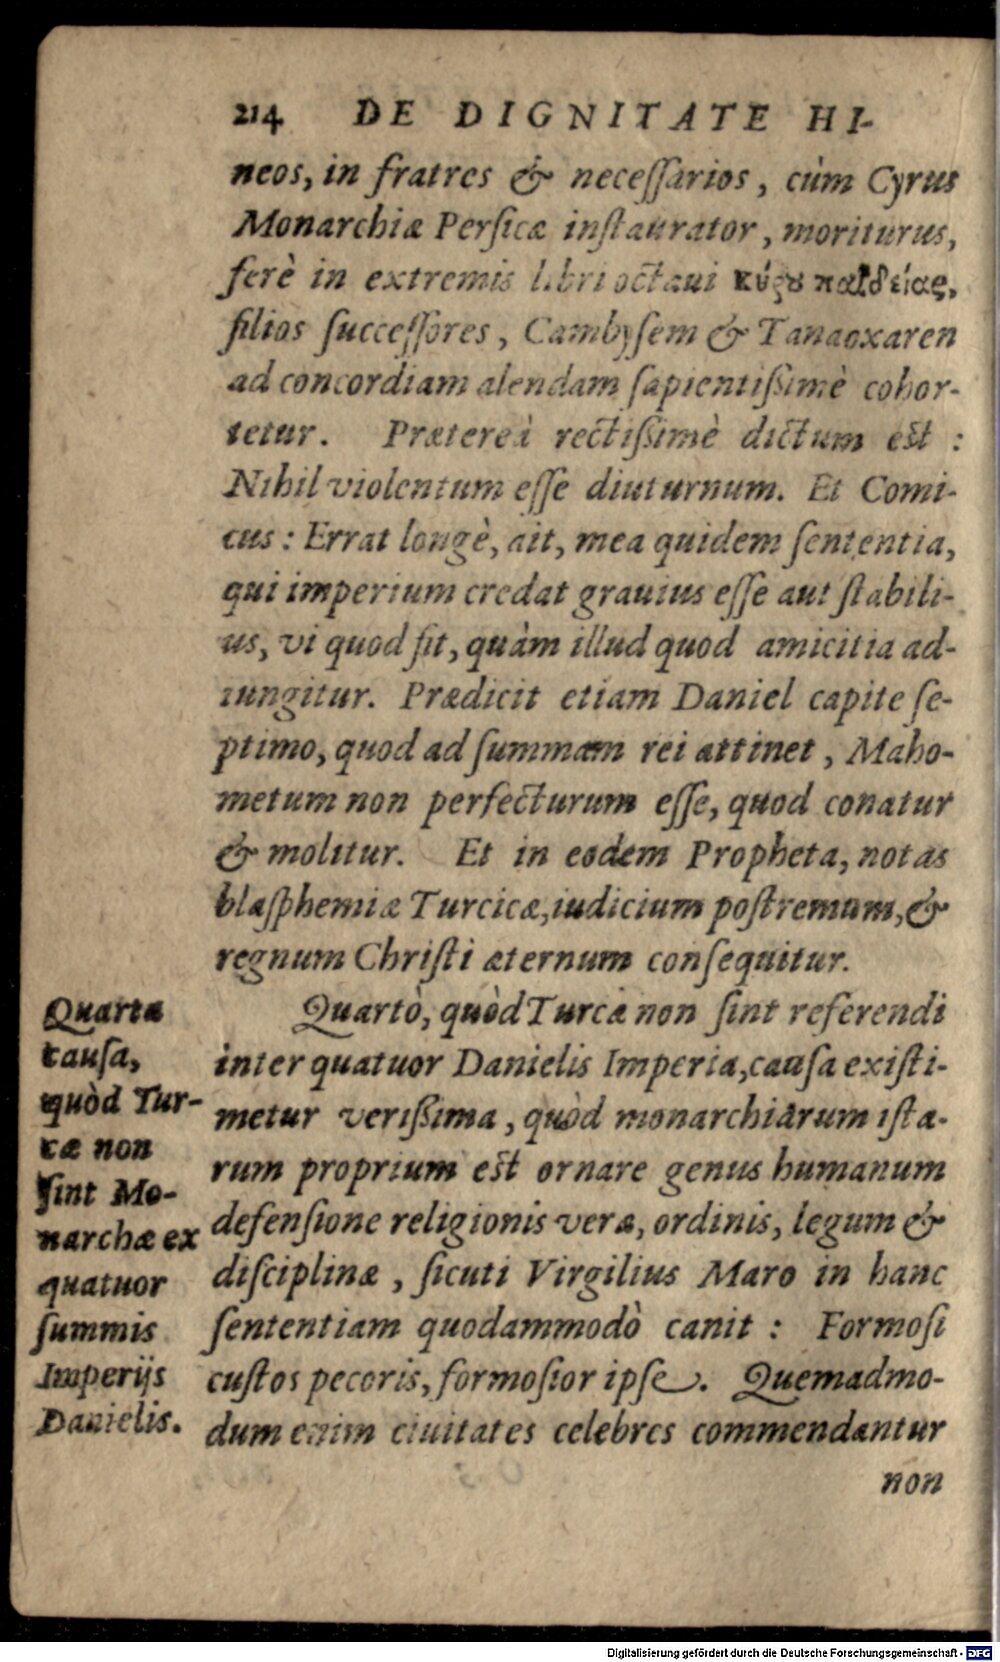 214 DE DIGNITATE HI-
neos, in fratres & neceſſarios, cùm Cyrus
Monarchiæ Perſicæ inſtaurator, moriturus,
ferè in extremis libri octaui κύρου παιδείας,
filios ſucceſſores, Cambyſem & Tanaoxaren
ad concordiam alendam ſapientißimè cohor-
tetur. Prætereà rectißimè dictum eſt :
Nihil violentum eſſe diuturnum. Et Comi-
cus : Errat longè, ait, mea quidem ſententia,
qui imperium credat grauius eſſe aut ſtabili-
us, vi quod fit, quàm illud quod amicitia ad-
iungitur. Prædicit etiam Daniel capite ſe-
ptimo, quod ad ſummam rei attinet, Maho-
metum non perfecturum eſſe, quod conatur
& molitur. Et in eodem Propheta, notas
blaſphemiæ Turcicæ, iudicium poſtremum, &
regnum Chriſti æternum conſequitur.
Quartò, quòd Turcæ non ſint referendi
inter quatuor Danielis Imperia, cauſa exiſti-
metur verißima, quòd monarchiarum iſta-
rum proprium eſt ornare genus humanum
defenſione religionis veræ, ordinis, legum &
diſciplinæ, ſicuti Virgilius Maro in hanc
ſententiam quodammodò canit : Formoſi
cuſtos pecoris, formoſior ipſe. Quemadmo-
dum enim ciuitates celebres commendantur
non
Quarta
cauſa,
quòd Tur-
cæ non
ſint Mo-
narchæ ex
quatuor
ſummis
Imperijs
Danielis.
Digitalisierung gefördert durch die Deutsche Forschungsgemeinschaft - DFG